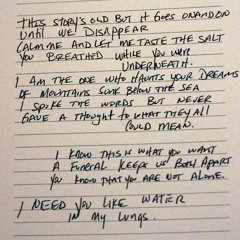 THIS STORY'S OLD BUT IT GOES ON AND ON
UNTIL WE DISAPPEAR
CALM ME AND LET ME TASTE THE SALT
YOU BREATHED WHILE YOU WERE
UNDERNEATH.
I AM THE ONE WHO HAUNTS YOUR DREAMS
OF MOUNTAINS SUNK BELOW THE SEA
I SPOKE THE WORDS BUT NEVER
GAVE A THOUGHT TO WHAT THEY ALL
COULD MEAN.
I KNOW THIS IS WHAT YOU WANT
A FUNERAL KEEPS US BOTH APART
YOU KNOW THAT YOU ARE NOT ALONE.
I NEED YOU LIKE WATER
IN MY LUNGS.